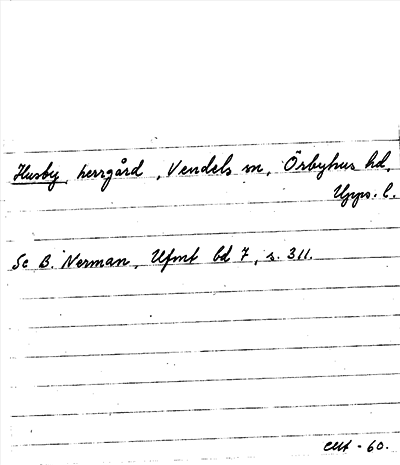 Husby, herrgård, Vendels sn, Örbyhus hd,
Upps. l.
Se B. Nerman, Ufmt bd 7, s. 311.
-60.